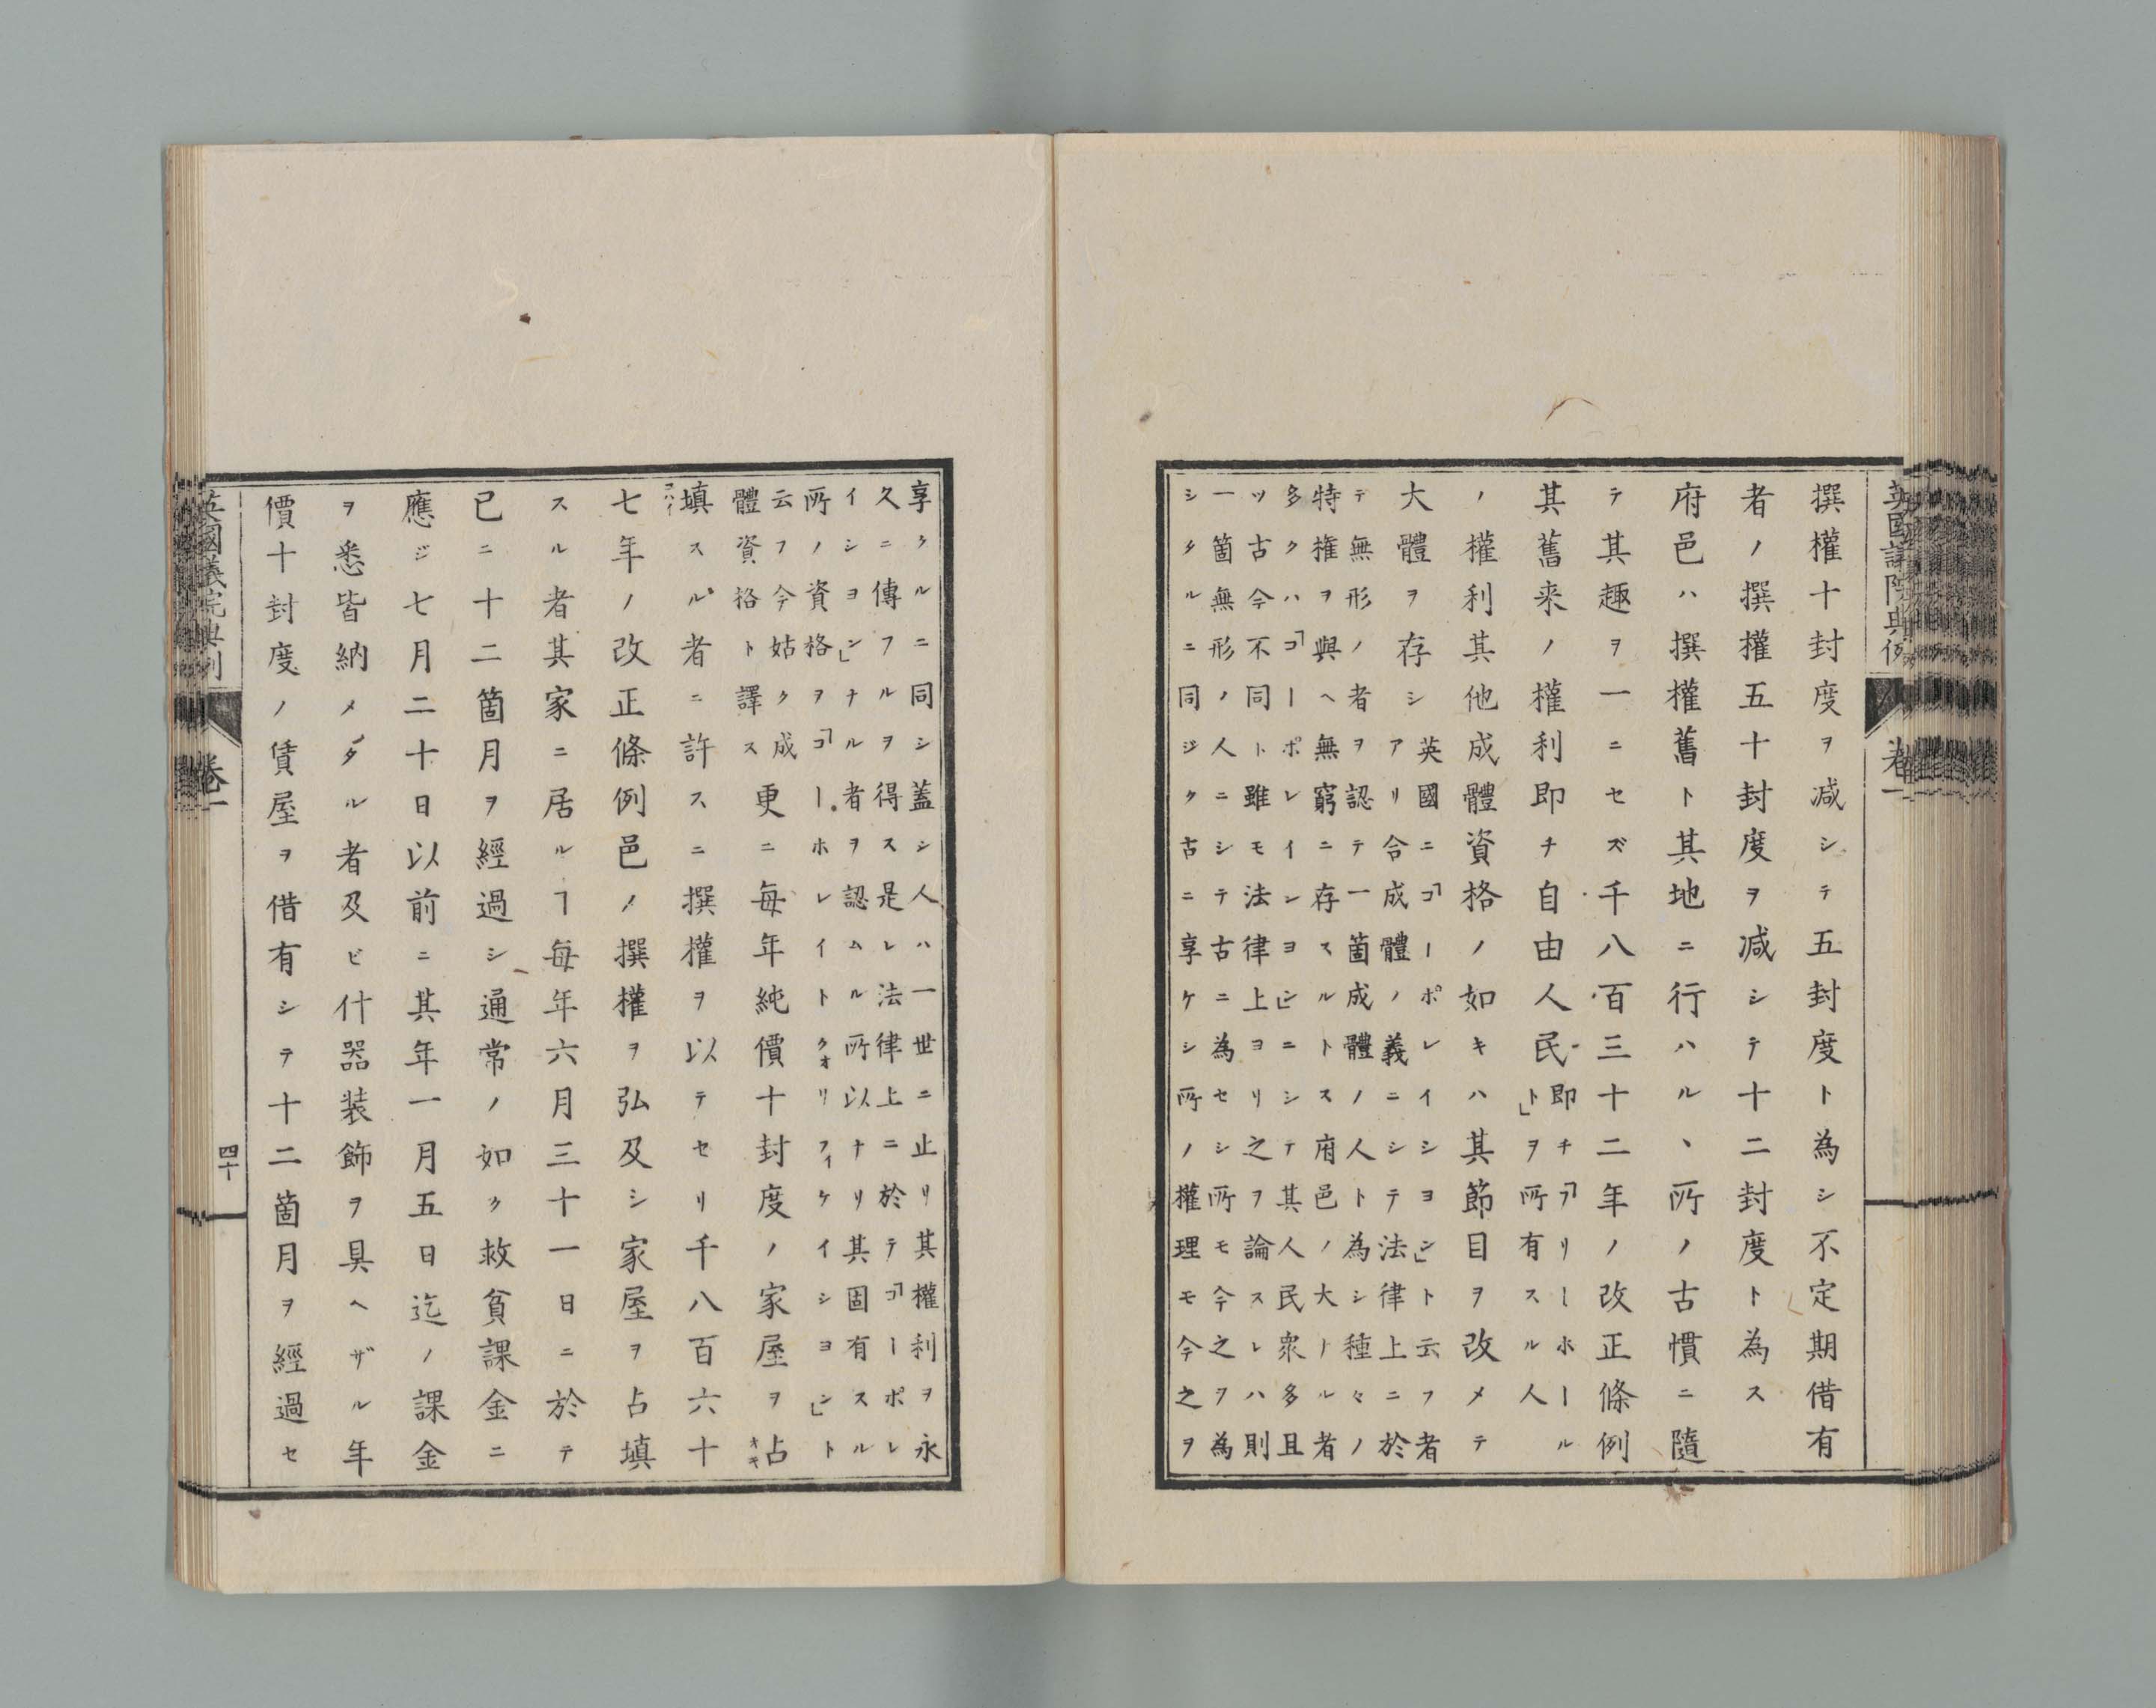 英國議院典例
卷一
撰權十封度ヲ減シテ五封度ト為シ不定期借有
者ノ撰權五十封度ヲ減シテ十二封度ト為ス
府邑ハ撰權舊ト其地ニ行ハルヽ所ノ古慣ニ隨
テ其趣ヲ一ニセズ千八百三十二年ノ改正條例
其舊来ノ權利即チ自由人民即チ「フリーホール
ト」ヲ所有スル人
ノ權利其他成體資格ノ如キハ其節目ヲ改メテ
大體ヲ存シ英國ニ「コーポレイシヨン」ト云フ者
アリ合成體ノ義ニシテ法律上ニ於
テ無形ノ者ヲ認テ一箇成體ノ人ト為シ種々ノ
特権ヲ與ヘ無窮ニ存スルトス府邑ノ大トル者
多クハ「コーポレイシヨン」ニシテ其人民衆多且
ツ古今不同ト雖モ法律上ヨリ之ヲ論スレハ則
一箇無形ノ人ニシテ古ニ為セシ所モ今之ヲ為
シタルニ同ジク古ニ享ケシ所ノ權理モ今之ヲ
享クルニ同シ蓋シ人ハ一世ニ止リ其權利ヲ永
久ニ傳フルヲ得ス是レ法律上ニ於テ「コーポレ
イシヨン」ナル者ヲ認ムル所以ナリ其固有スル
所ノ資格ヲ「コーホレイトクオリフィケイシヨン」ト
云フ今姑ク成
體資格ト譯ス更ニ毎年純價十封度ノ家屋ヲ占
填スル者ニ許スニ撰權ヲ以テセリ千八百六十
七年ノ改正條例邑ノ撰權ヲ弘及シ家屋ヲ占填
スル者其家ニ居ルヿ毎年六月三十一日ニ於テ
已ニ十二箇月ヲ經過シ通常ノ如ク救貧課金ニ
應ジ七月二十日以前ニ其年一月五日迄ノ課金
ヲ悉皆納メタル者及ビ什器装飾ヲ具ヘザル年
價十封度ノ賃屋ヲ借有シテ十二箇月ヲ經過セ
英國議院典例
卷一
四十